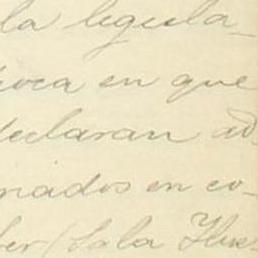 la legisla-
poca en que
declaran ad-
nados en co-
ber (Sala